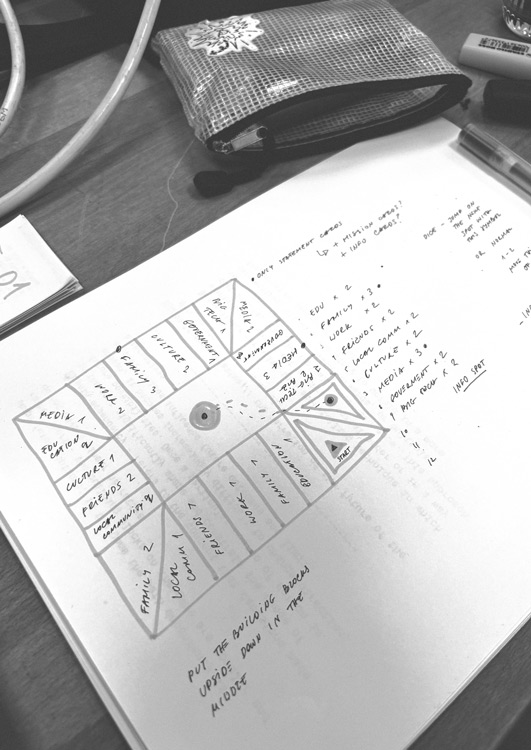 01
• ONLY STATEMENT CARDS
↳ + MISSION CARDS?
+ INFO CARDS?
DICE - JUMP ON
THE NEXT
SPOT WITH
THIS SYMBOL
OR NORMAL
1-2
• EDU × 2
• FAMILY × 3 •
• WORK × 2
• FRIENDS × 2
• LOCAL COMM × 2
• CULTURE × 2
• MEDIA × 3 •
• GOVERMENT × 2
• BIG TECH × 2
INFO SPOT
10
11
12
MEDIA 1
WORK 2
FAMILY 3
CULTURE 2
GOVERNMENT 1
BIG
TECH 1
MEDIA 2
MEDIA 3
BIG TECH
2
START
EDUCATION
1
FAMILY 1
WORK 1
FRIENDS 1
LOCAL
COMM 1
FAMILY 2
LOCAL
COMMUNITY 2
FRIENDS 2
CULTURE 1
EDU
CATION
2
PUT THE BUILDING BLOCKS
UPSIDE DOWN IN THE
MIDDLE